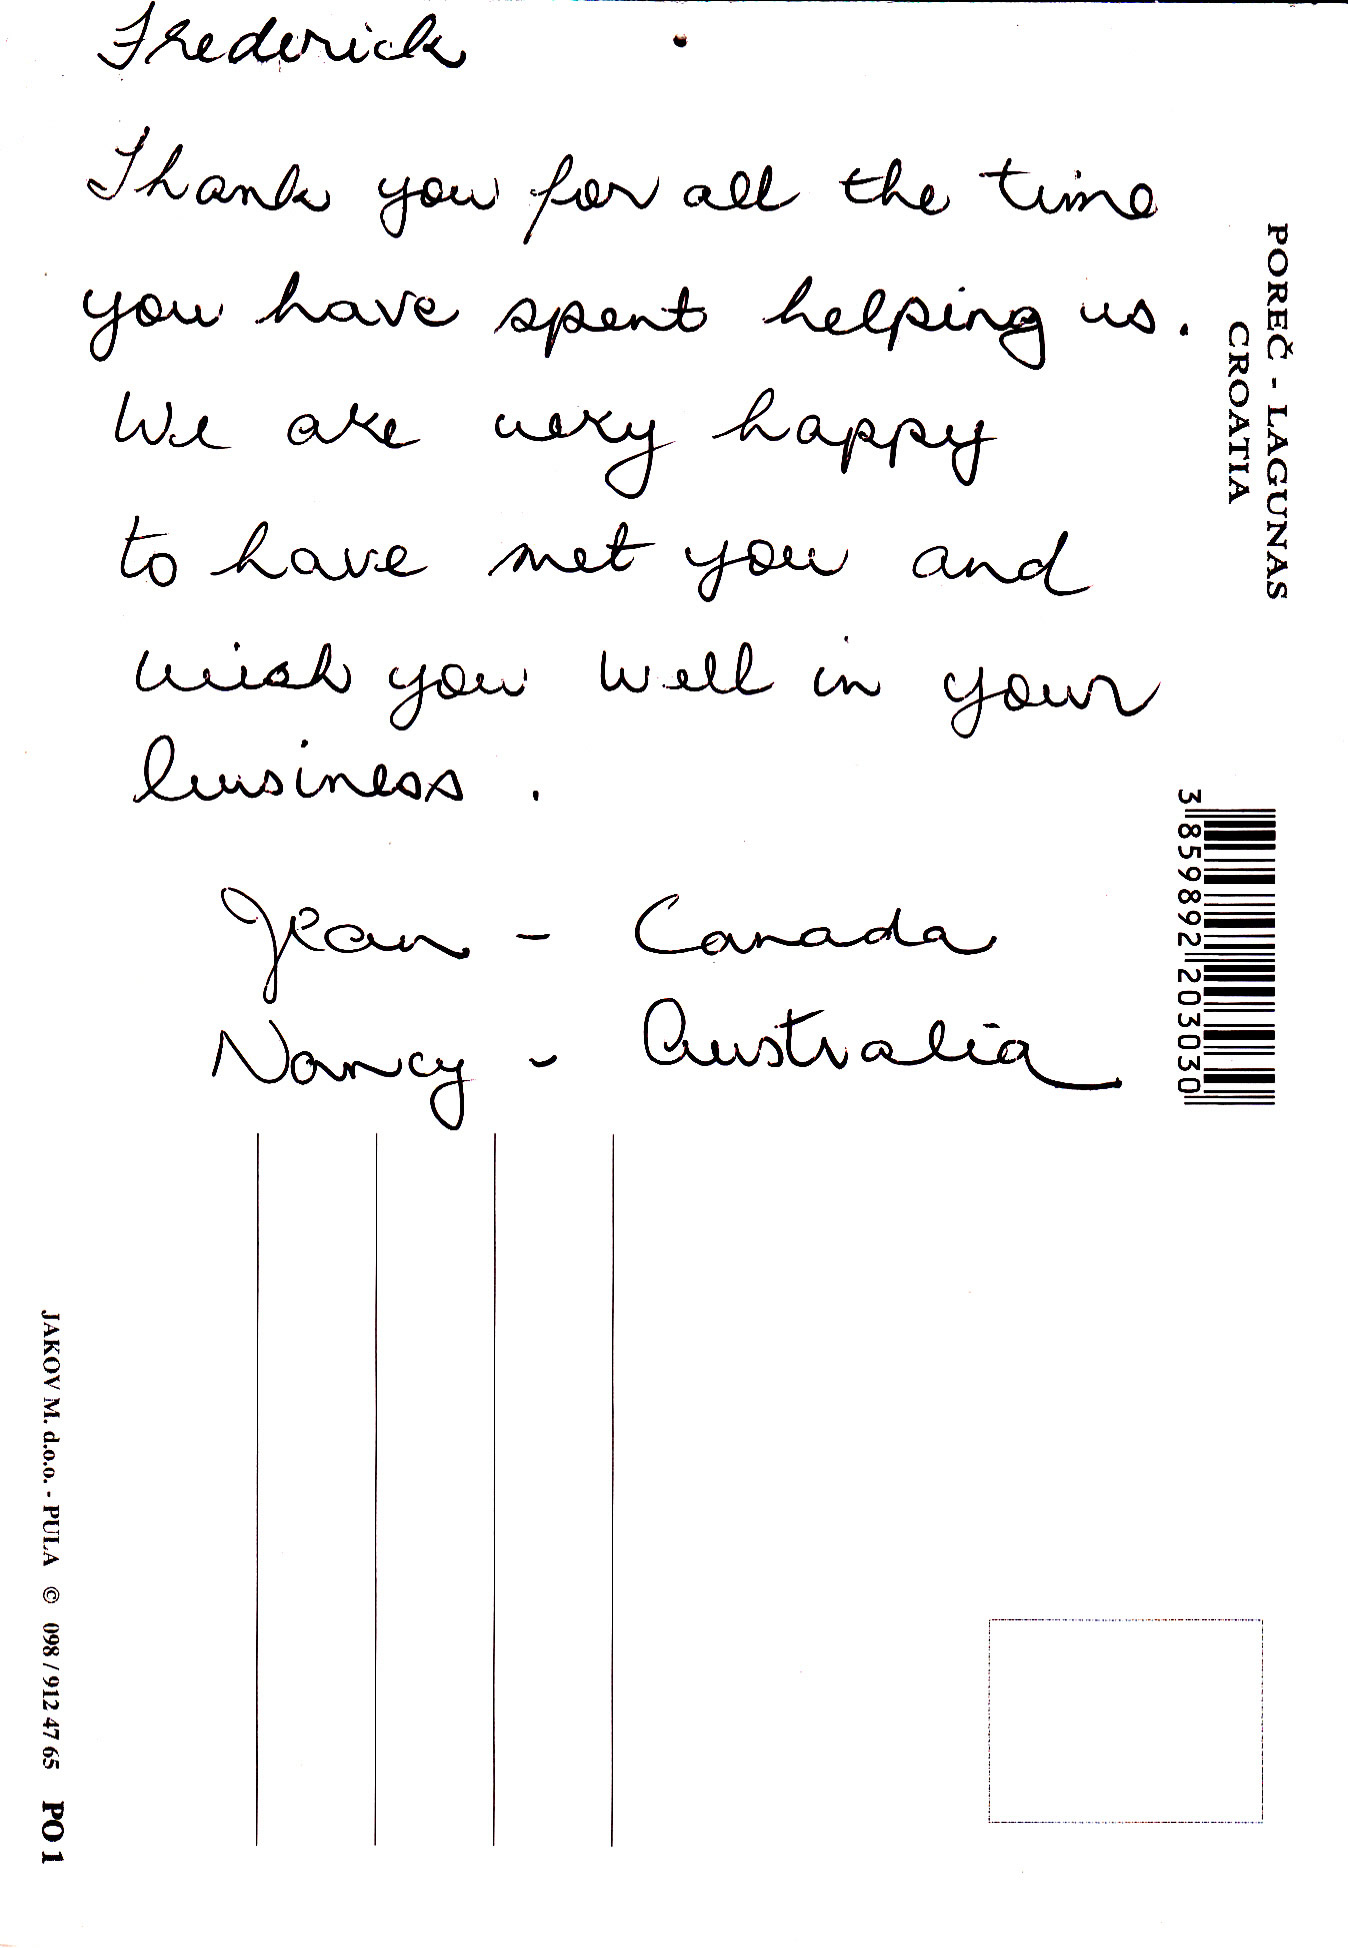 Frederick
Thank you for all the time
you have spent helping us.
We are very happy
to have met you and
wish you well in your
business.
Jean - Canada
Nancy - Australia
POREČ - LAGUNAS
CROATIA
3 859892 203030
JAKOV M. d.o.o. - PULA © 098 / 912 47 65 PO 1